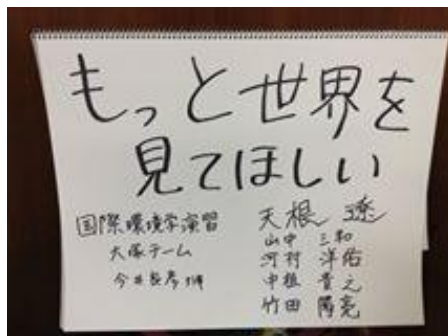 もっと世界を
見てほしい
国際環境学演習
大塚チーム
今井
天根 遼
山中 三和
河村 洋佑
中植 貴之
竹田 陽亮